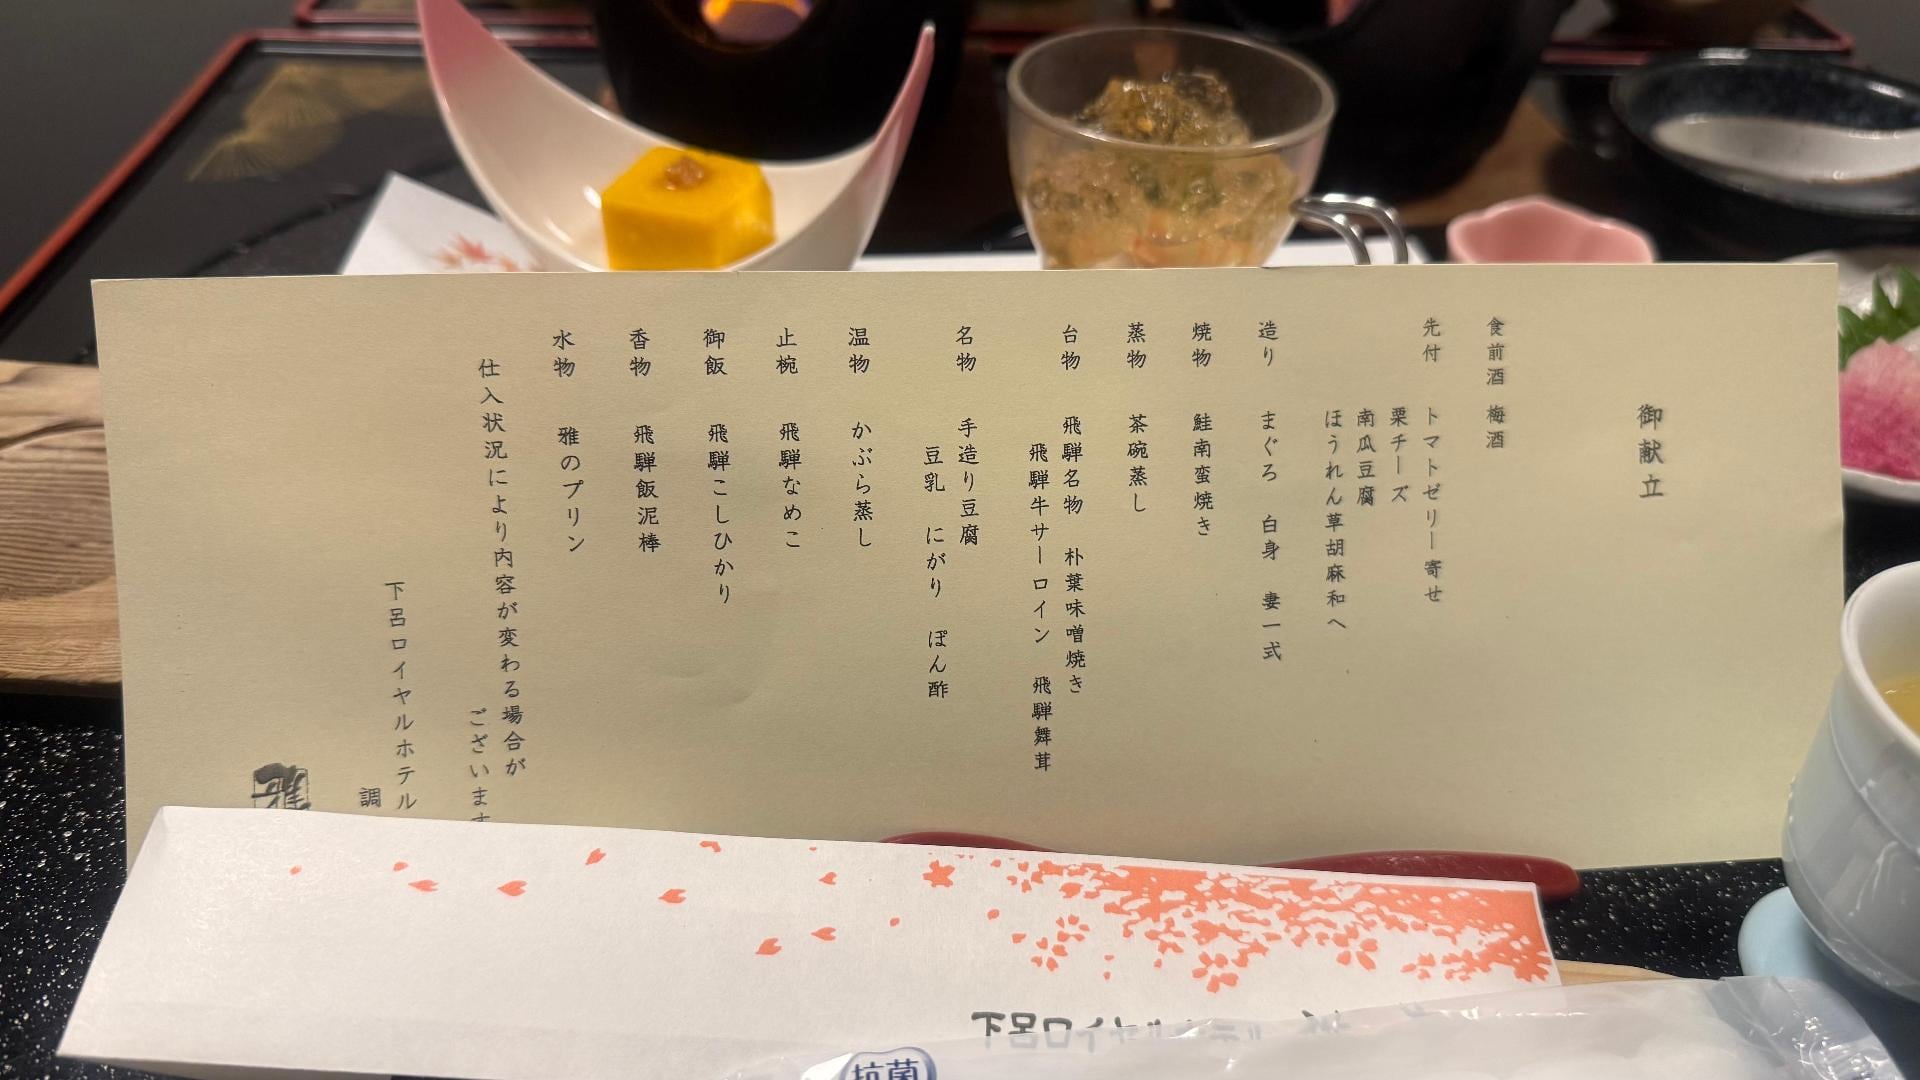 御献立
食前酒 梅酒
先付 トマトゼリー寄せ
栗チーズ
南瓜豆腐
ほうれん草胡麻和へ
造り まぐろ 白身 妻一式
焼物 鮭南蛮焼き
蒸物 茶碗蒸し
台物 飛騨名物 朴葉味噌焼き
飛騨牛サーロイン 飛騨舞茸
名物 手造り豆腐
豆乳 にがり ぽん酢
温物 かぶら蒸し
止椀 飛騨なめこ
御飯 飛騨こしひかり
香物 飛騨飯泥棒
水物 雅のプリン
仕入状況により内容が変わる場合が
ございます
下呂ロイヤルホテル
調
下呂ロイヤルホテル
抗菌